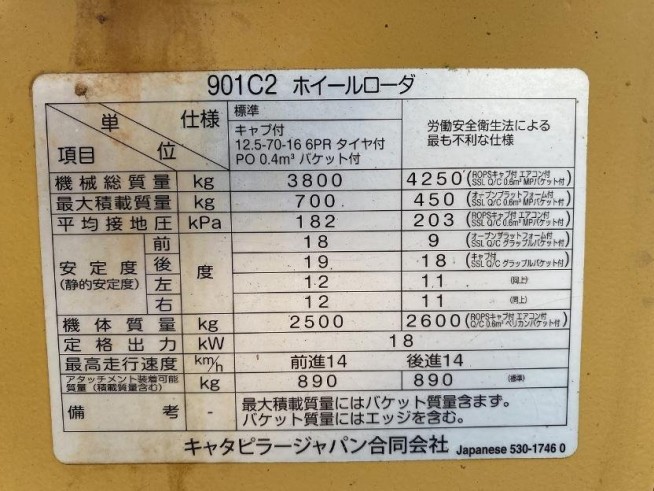 901C2 ホイールローダ
単位 仕様 項目
標準
キャブ付
12.5-70-16 6PR タイヤ付
PO 0.4m³ バケット付
労働安全衛生法による
最も不利な仕様
機械総質量 kg 3800 4250 (ROPSキャブ付 エアコン付 SSL Q/C 0.6m³ MPバケット付)
最大積載質量 kg 700 450 (オープンプラットフォーム付 SSL Q/C 0.6m³ MPバケット付)
平均接地圧 kPa 182 203 (ROPSキャブ付 エアコン付 SSL Q/C 0.6m³ MPバケット付)
安定度 (静的安定度) 度
前 18 9 (オープンプラットフォーム付 SSL Q/C グラップルバケット付)
後 19 18 (キャブ付 SSL Q/C グラップルバケット付)
左 12 11 (同上)
右 12 11 (同上)
機体質量 kg 2500 2600 (ROPSキャブ付 エアコン付 Q/C 0.6m³ ペリカンバケット付)
定格出力 kW 18
最高走行速度 km/h 前進14 後進14
アタッチメント装着可能質量(積載質量含む) kg 890 890 (標準)
備考 - 最大積載質量にはバケット質量含まず。
バケット質量にはエッジを含む。
キャタピラージャパン合同会社 Japanese 530-1746 0